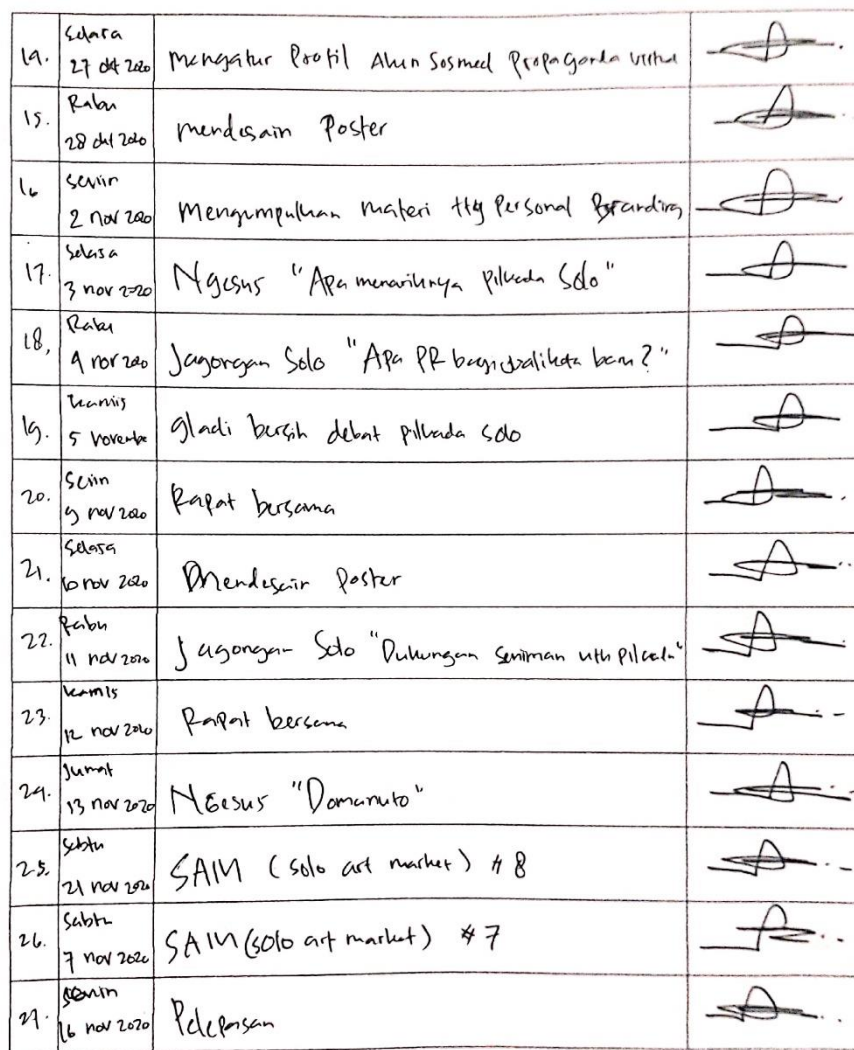 14.
Selasa
27 okt 2020
Mengatur Profil Akun Sosmed Propaganda
15.
Rabu
28 okt 2020
mendesain Poster
16
Senin
2 nov 2020
Mengumpulkan materi ttg Personal Branding
17.
Selasa
3 nov 2020
Ngesus "Apa menariknya pilkada Solo"
18,
Rabu
4 nov 2020
Jagongan Solo "Apa PR bagi walikota baru?"
19.
kamis
5 november
gladi bersih debat pilkada solo
20.
Senin
9 nov 2020
Rapat bersama
21.
Selasa
10 nov 2020
Mendesain Poster
22.
Rabu
11 nov 2020
Jagongan Solo "Dukungan Seniman utk Pilkada"
23.
kamis
12 nov 2020
Rapat bersama
24.
Jumat
13 nov 2020
NGesus "Domanuto"
25.
Sabtu
21 nov 2020
SAM (solo art market) #8
26.
Sabtu
7 nov 2020
SAM (solo art market) #7
27.
Senin
16 nov 2020
Pelepasan